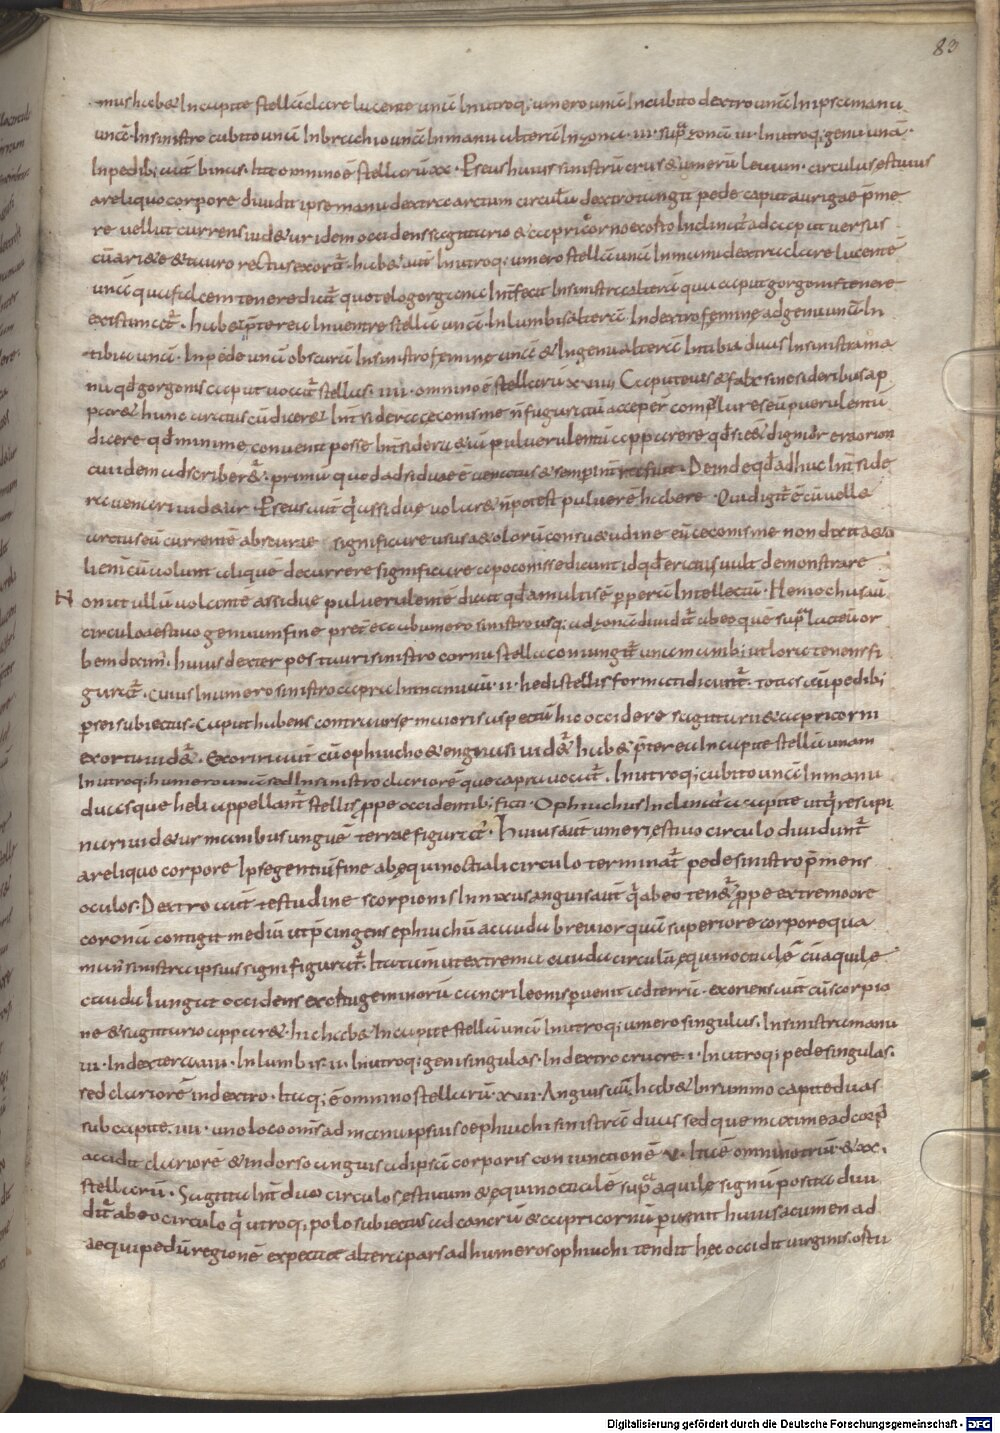 83
mus hab& In capite stellā clare lucente unā In utroq; umero unā In cubito dextro unā In ipsa manu
unā · In sinistro cubito unā In brachio unā In manu alterā In zona · III · sup̄ zonā III · In utroq; genu unā ·
In pedib; aut̄ binas · Ita omnino ē stellarū xx · Perseus huius sinistrū crus & umerū leuum · circulus estiuus
a reliquo corpore diuidit ipse manu dextra arcticum circulū dextro tangit pede caput aurigae p̄me
re uellut currens uid&ur idem occidens sagittario & capricorno ex osto Inclinat̄ ad caput uersus
cū ari&e & tauro rectus exorit̄ · hab& aut̄ In utroq; umero stellā unā In manu dextra clare lucentē
unā qua falcem tenere dicit̄ quo telo gorgona Interfecit In sinistra alterā qua caput gorgonis tenere
existimat̄ · hab& p̄terea In uentre stellā unā · In lumbis alterā · In dextro femine ad genu unā · In
tibia unā · In pede unā obscurā In sinistro femine unā & In genu alterā In tibia duas In sinistra ma
nu qd̄ gorgonis caput uocat̄ stellas · IIII · omnino ē stellarū xviiii Caput eius & falx sine sideribus ap
par& hunc aratus cū dicer&
dicere qd̄ minime conuenit posse Int̄ sidera & iā puluerulentū apparere qd̄ si
cuidem adscriber&̄ ·
ra uenari uid&ur · Perseus aut̄ q̄ assidue uolar& n̄ potest puluerē habere · Quid igit̄ ē cū uell&
aratus eū currentē significare usus aeolorū consu&udine eū cecomisme non dixit
lieni cū uolunt alique decurrere significare apocomisse dicunt id qd̄ eratus uult demonstrare
N on ut ullū uolante assidue puluerulentē dicit qd̄ a multis ē p̄perā Intellectū · Heniochus aū
circulo aestiuo genuum fine
bem diximus · huius dexter pes tauri sinistro cornu stella coniungit̄ una manib; ut lora tenens fi
gurat̄ · Cuius In umero sinistro capra In manu aū · II · hedi stellis formati dicunt̄ · totus aū pedib;
persei subiectus · Caput habens contra urse maioris aspectū hic occidere sagittarii & capricorni
exortu uid&̄ · Exoriri aut̄ cū ophiucho & engonasi uid&̄ hab& p̄terea In capite stellā unam
In utroq; humero unā sed In sinistro clariorē que capra uocat̄ · In utroq; cubito unā In manu
duas que heli appellant̄ stellis p̄pe occidentib; ficti · Ophiuchus Inclinat̄ a capite utq̄ resupi
nari uid&ur manibus anguē tenere figurat̄ · Huius aut̄ umeri estiuo circulo diuidunt̄
a reliquo corpore Ipse genuū fine ab equinoctiali circulo terminat̄ pede sinistro p̄mens
oculos · Dextro aut̄ testudine scorpionis Innixus anguis aut̄ q̄ ab eo ten&̄ p̄pe extremo ore
coronā contigit mediū ut p̄cingens ophiuchū a cauda breuior quā superiore corpore qua
man̄ sinistra ipsius signi figurat̄ · Ita tam ut extrema cauda circulū equinoctialē cū aquilę
cauda Iungat occidens exortu geminorū cancri leonis peruenit ad terrā · exoriens aut̄ cū scorpio
ne & sagittario appar& · hic hab& In capite stellā unā In utroq; umero singulas · In sinistra manu
III · In dextera IIII · In lumbis · II · In utroq; geni singulas · In dextro crure · I · In utroq; pede singulas ·
sed clariorē in dextro · Itaq; ē omnino stellarū · XVII · Anguis aū hab& In summo capite duas
sub capite · IIII · uno loco oms̄ ad manū ipsius oephiuchi sinistrā duas sed que maxime ad corp̄
accidit clariorē & In dorso anguis ad ipsā corporis coniunctionē · V · Ita ē omnino triū & xx ·
stellarū · Sagitta Int̄ duos circulos estiuum & equinoctialē sup̄ aquilę signū posita diui
dit̄ ab eo circulo q̄ utroq; polo subiectus ad cancrū & capricornū peruenit huius acumen ad
aequi pedū regionē expectat altera pars ad humeros ophiuchi tendit hec occidit uirginis ostu
Digitalisierung gefördert durch die Deutsche Forschungsgemeinschaft - DFG